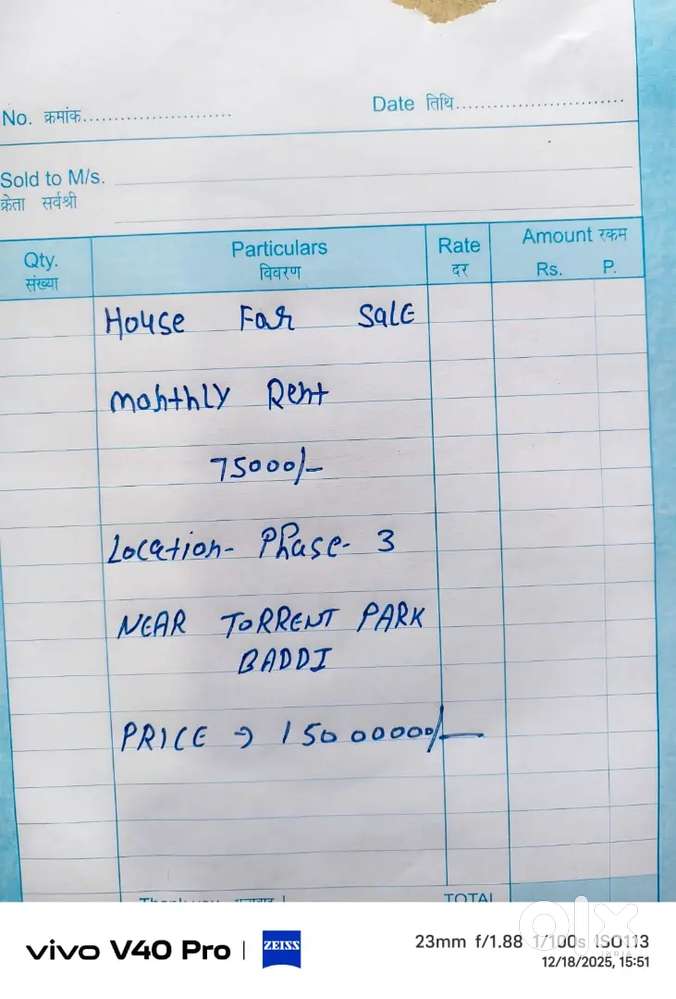 No. क्रमांक........................ Date तिथि............................
Sold to M/s.
क्रेता सर्वश्री
Qty. Particulars Rate Amount रकम
संख्या विवरण दर Rs. P.
House For Sale
monthly Rent
75000/-
Location- Phase- 3
NEAR TORRENT PARK
BADDI
PRICE → 15000000/-
TOTAL
vivo V40 Pro | ZEISS 23mm f/1.88 1/100s ISO113
12/18/2025, 15:51
olx